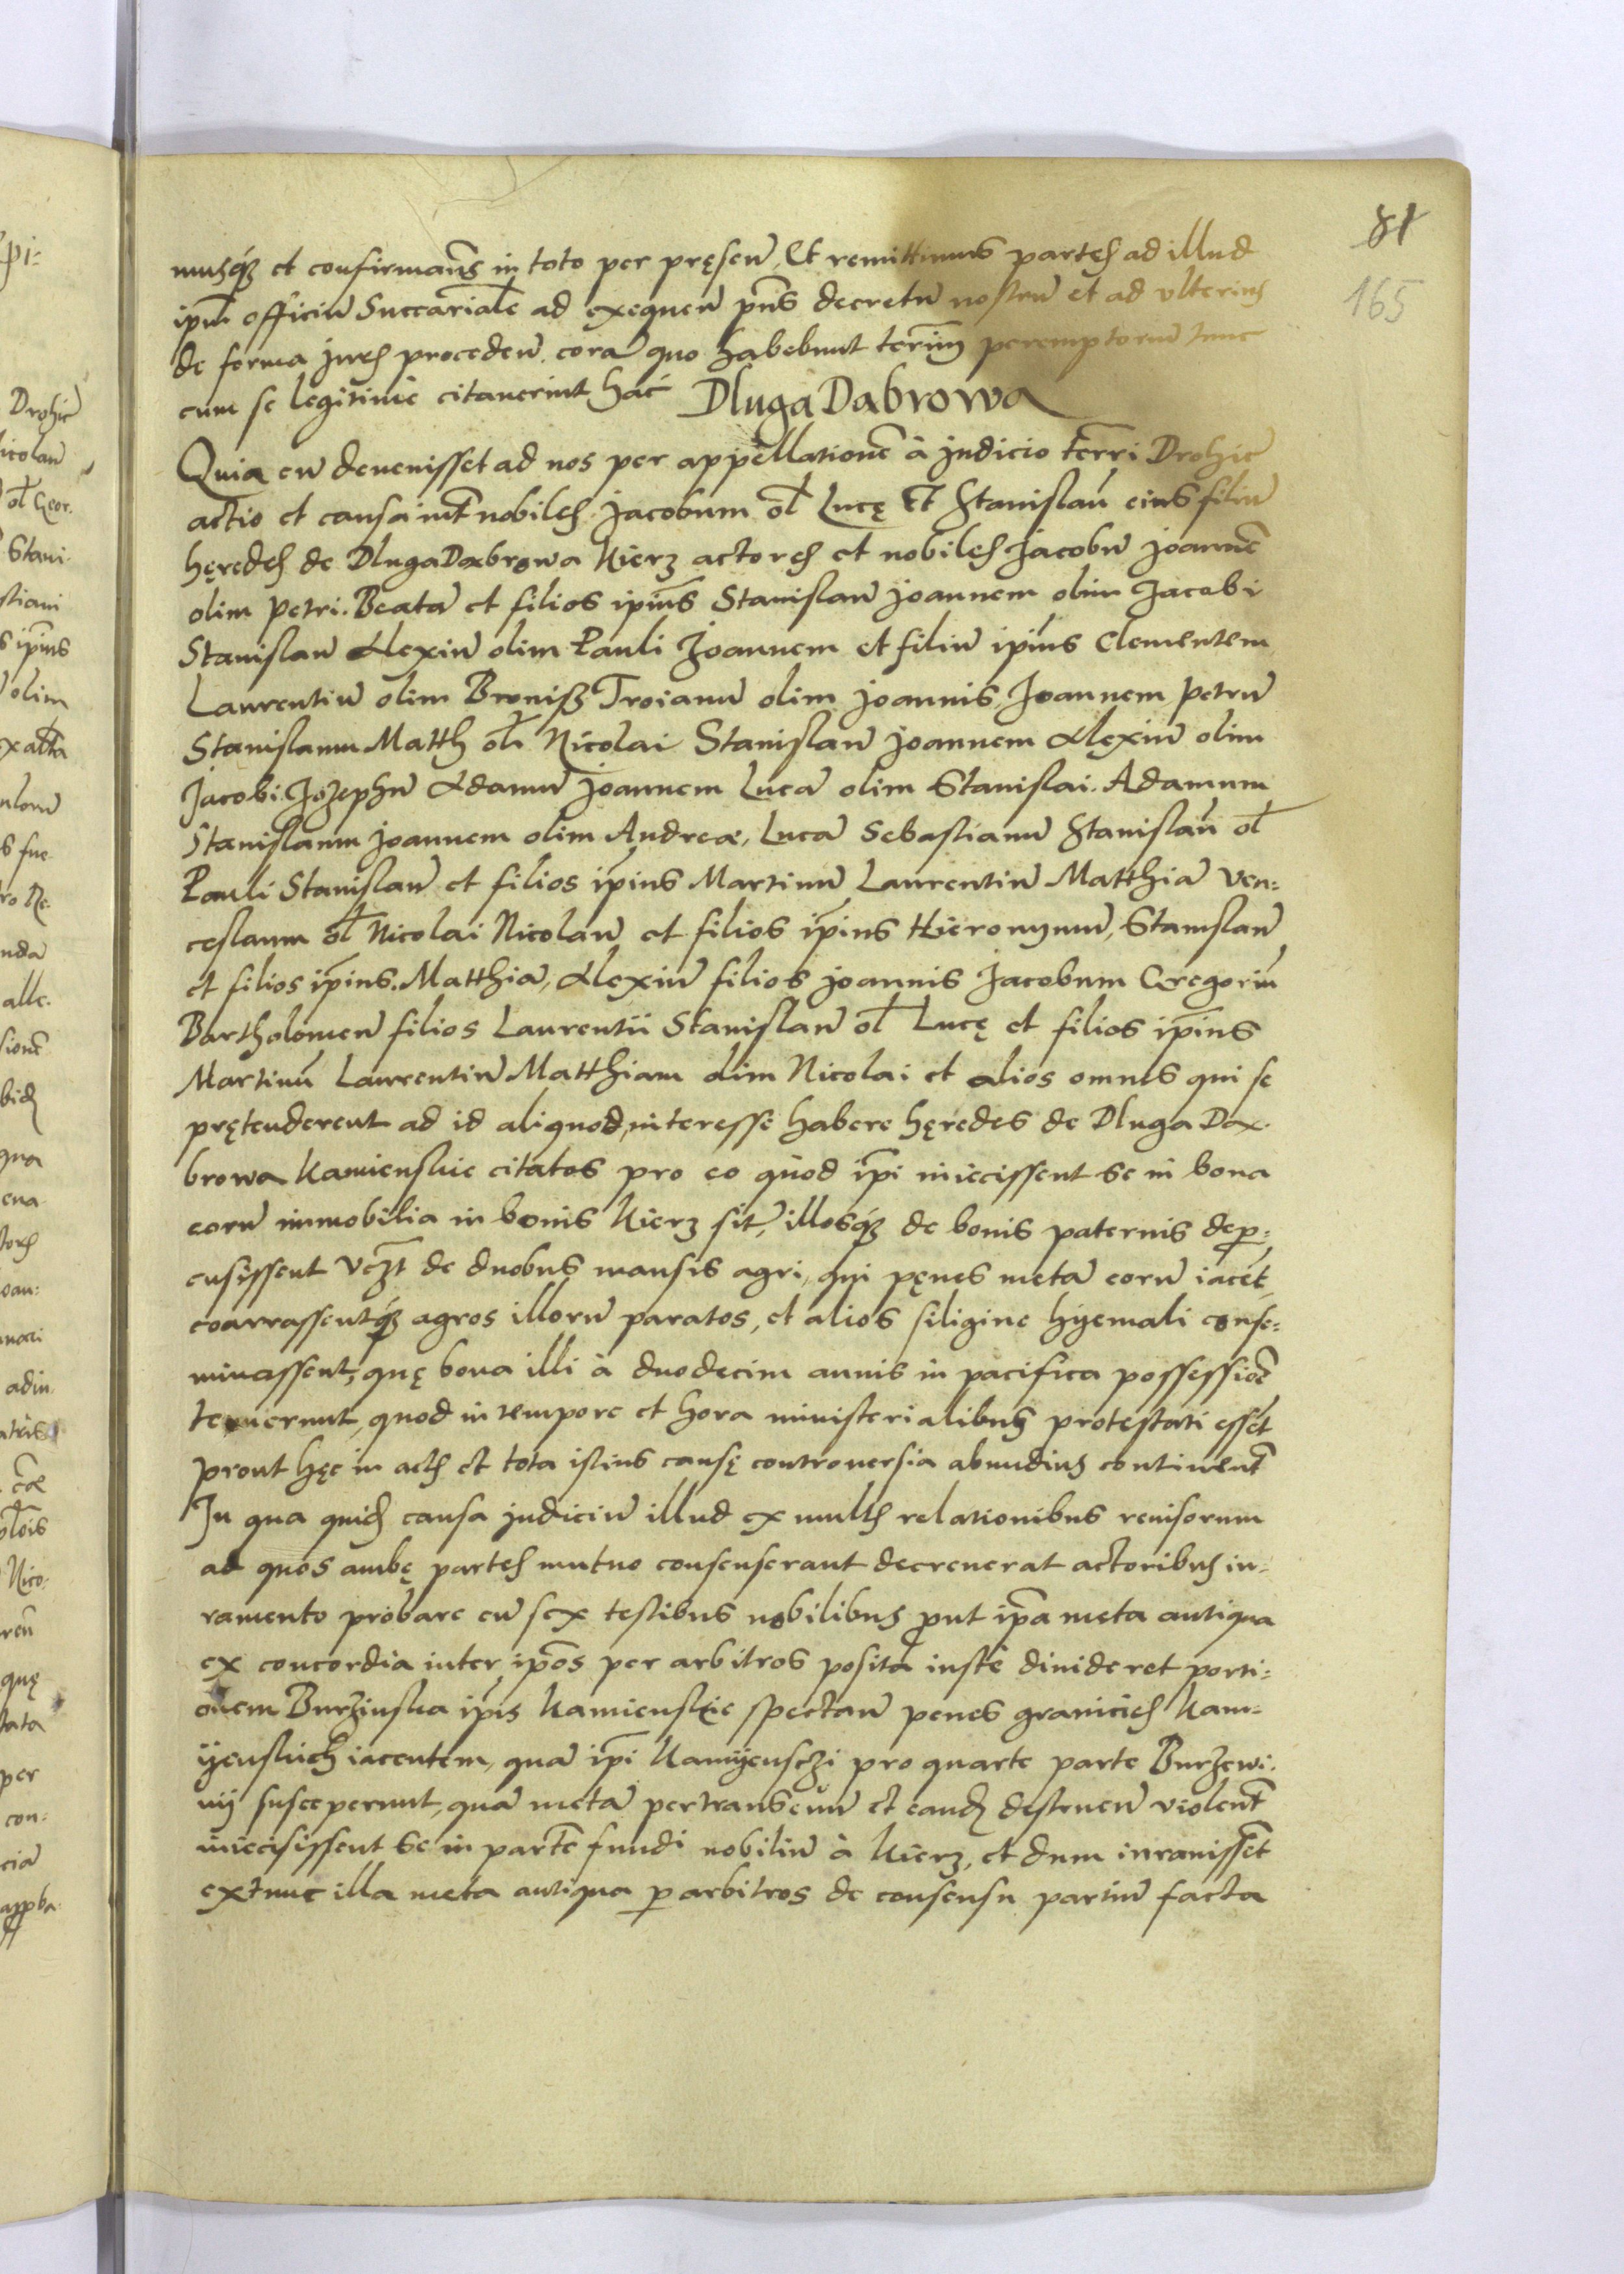 81
165
musq₃ et confirmam̃s in toto per pręseñ, Et remittimus partes ad illud
ipm̃ officiũ Succariale ad exequeñ pñs decretũ nostrũ et ad vlterius
de forma juris procedeñ. corã quo habebunt termĩm peremptoriũ tunc
cum se legitimè citauerint hac̃ Dluga Dabrowa
Quia cũ deuenisset ad nos per appellationẽ à judicio terri Drohic̃
actio et causa int̃ nobiles Jacobum ol̃ Lucę Et Stanislaũ eius filiũ
hęredes de Dluga Dabrowa Kierz actores et nobiles Jacobũ Joannẽ
olim Petri. Beatã et filios ipĩus Stanislaũ Joannem olim Jacobi
Stanislaũ Alexiũ olim Pauli Joannem et filiũ ipĩus Clementem
Laurentiũ olim Bronisz Troianũ olim Joannis, Joannem Petrũ
Stanislaum Matth ol̃ Nicolai Stanislaũ Joannem Alexiũ olim
Jacobi. Jozephũ Adamũ Joannem Lucã olim Stanislai. Adamum
Stanislaum Joannem olim Andreæ, Lucã Sebastianũ Stanislaũ ol̃
Pauli Stanislaũ et filios ipĩus Martinũ Laurentiũ Matthiã Ven:
ceslaum ol̃ Nicolai Nicolaũ et filios ipĩus Hieronymũ, Stanislaũ
et filios ipĩus. Matthiã, Alexiũ filios Joannis Jacobum Gregoriũ
Bartholomeũ filios Laurentii Stanislaũ ol̃ Lucę et filios ipĩus
Martinũ Laurentiũ Matthiam olim Nicolai et alios omnes qui se
prętenderent ad id aliquod interesse habere hęredes de Dluga Dax-
browa Kamienskie citatos pro eo quòd ipĩ iniecissent se in bona
eorũ immobilia in bonis Kierz sit̃, illosq₃ de bonis paternis deper:
cusissent vczt̃ de duobus mansis agri, qui pęnes metã eorũ iacẽt,
coarrassentq₃ agros illorũ paratos, et alios siligine hyemali conse:
minassent, quę bona illi à duodecim annis in pacifica possessiõe
tenuerunt, quod in tempore et hora ministerialibus protestati essẽt
prout hęc in actis et tota istius causę controuersia abundius continent̃
In qua quid̃ causa judiciũ illud ex multis relationibus reuisorum
ad quos ambę partes mutuo consenserant decreuerat actoribus iu-
ramento probare cũ sex testibus nobilibus prout ipã meta antiqua
ex concordia inter ipõs per arbitros posita iustè diuideret porti:
onem Burzinska ipĩs Kamienskie spectañ penes granicies Kam-
ÿenskich iacentem, quã ipĩ Kamÿensczi pro quarte parte Burzewi-
nij susceperunt, quã metã pertranseuñ et eand̃ destrueñ violent̃
iniecisissent se in partẽ fundi nobiliũ à Kierz, et dum iurauissẽt
extunc illa meta antiqua p arbitros de consensu partiũ facta